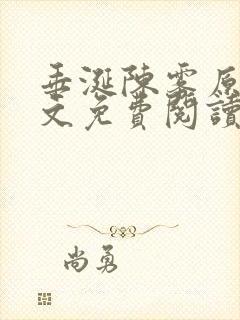 垂涎陳雾原
文免費閱讀
尚勇